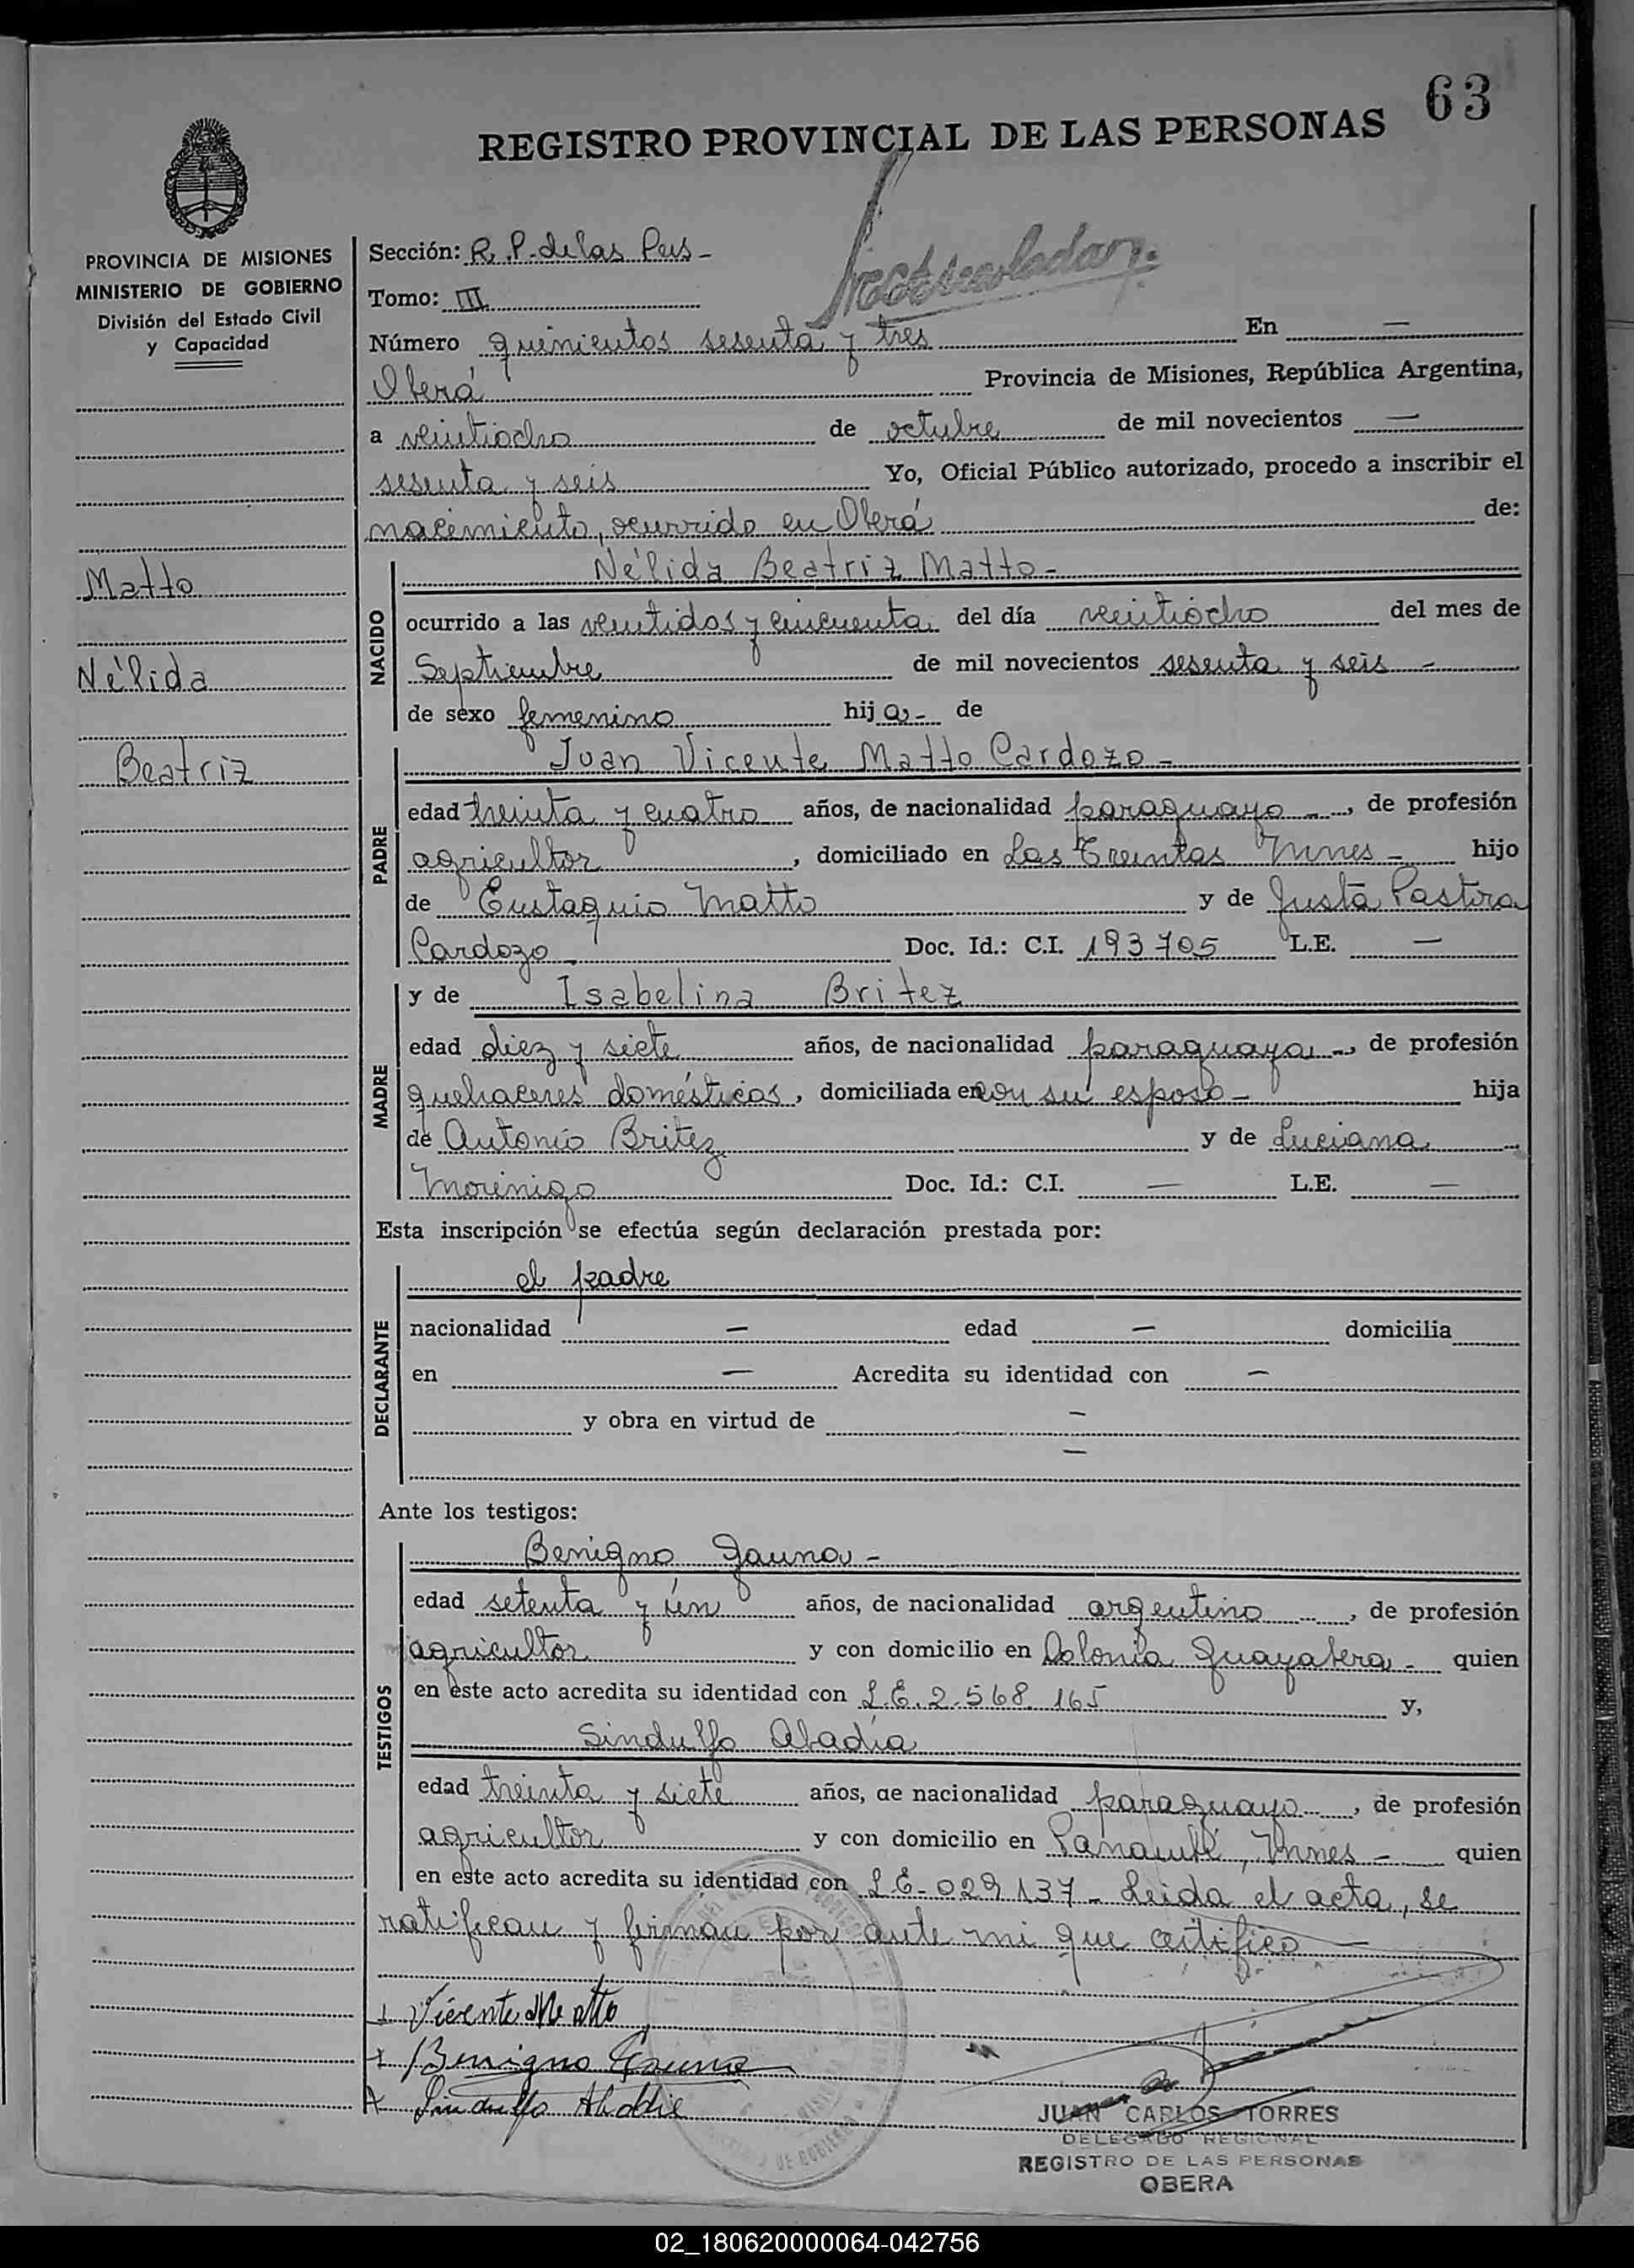 63
REGISTRO PROVINCIAL DE LAS PERSONAS
PROVINCIA DE MISIONES
MINISTERIO DE GOBIERNO
División del Estado Civil
y Capacidad
Matto
Nélida
Beatriz
Sección: R. P. de las Pers -
Tomo: III
Número quinientos sesenta y tres En —
Oberá Provincia de Misiones, República Argentina,
a veintiocho de octubre de mil novecientos —
sesenta y seis Yo, Oficial Público autorizado, procedo a inscribir el
nacimiento, ocurrido en Oberá de:
NACIDO
Nélida Beatriz Matto -
ocurrido a las veintidos y cincuenta del día veintiocho del mes de
Septiembre de mil novecientos sesenta y seis -
de sexo femenino hija - de
PADRE
Juan Vicente Matto Cardozo -
edad treinta y cuatro años, de nacionalidad paraguayo -, de profesión
agricultor, domiciliado en Las Treintas Mnes - hijo
de Eustaquio Matto y de Justa Pastora
Cardozo - Doc. Id.: C.I. 193705 L.E. —
MADRE
y de Isabelina Britez
edad diez y siete años, de nacionalidad paraguaya -, de profesión
quehaceres domésticos, domiciliada en con su esposo - hija
de Antonio Britez y de Luciana
Morinigo Doc. Id.: C.I. — L.E. —
Esta inscripción se efectúa según declaración prestada por:
DECLARANTE
el padre
nacionalidad — edad — domicilia
en — Acredita su identidad con —
y obra en virtud de —
—
Ante los testigos:
TESTIGOS
Benigno Gauna -
edad setenta y ún años, de nacionalidad argentino, de profesión
agricultor y con domicilio en Colonia Guayabera - quien
en este acto acredita su identidad con L.E. 2.568.165 y,
Sindulfo Abadía
edad treinta y siete años, de nacionalidad paraguayo, de profesión
agricultor y con domicilio en Panambí, Mnes - quien
en este acto acredita su identidad con L.E - 029137 - Leida el acta, se
ratifican y firman por ante mi que certifico —
Vicente Matto
Benigno Gauna
Sindulfo Abadie
JUAN CARLOS TORRES
DELEGADO REGIONAL
REGISTRO DE LAS PERSONAS
OBERA
02_180620000064-042756